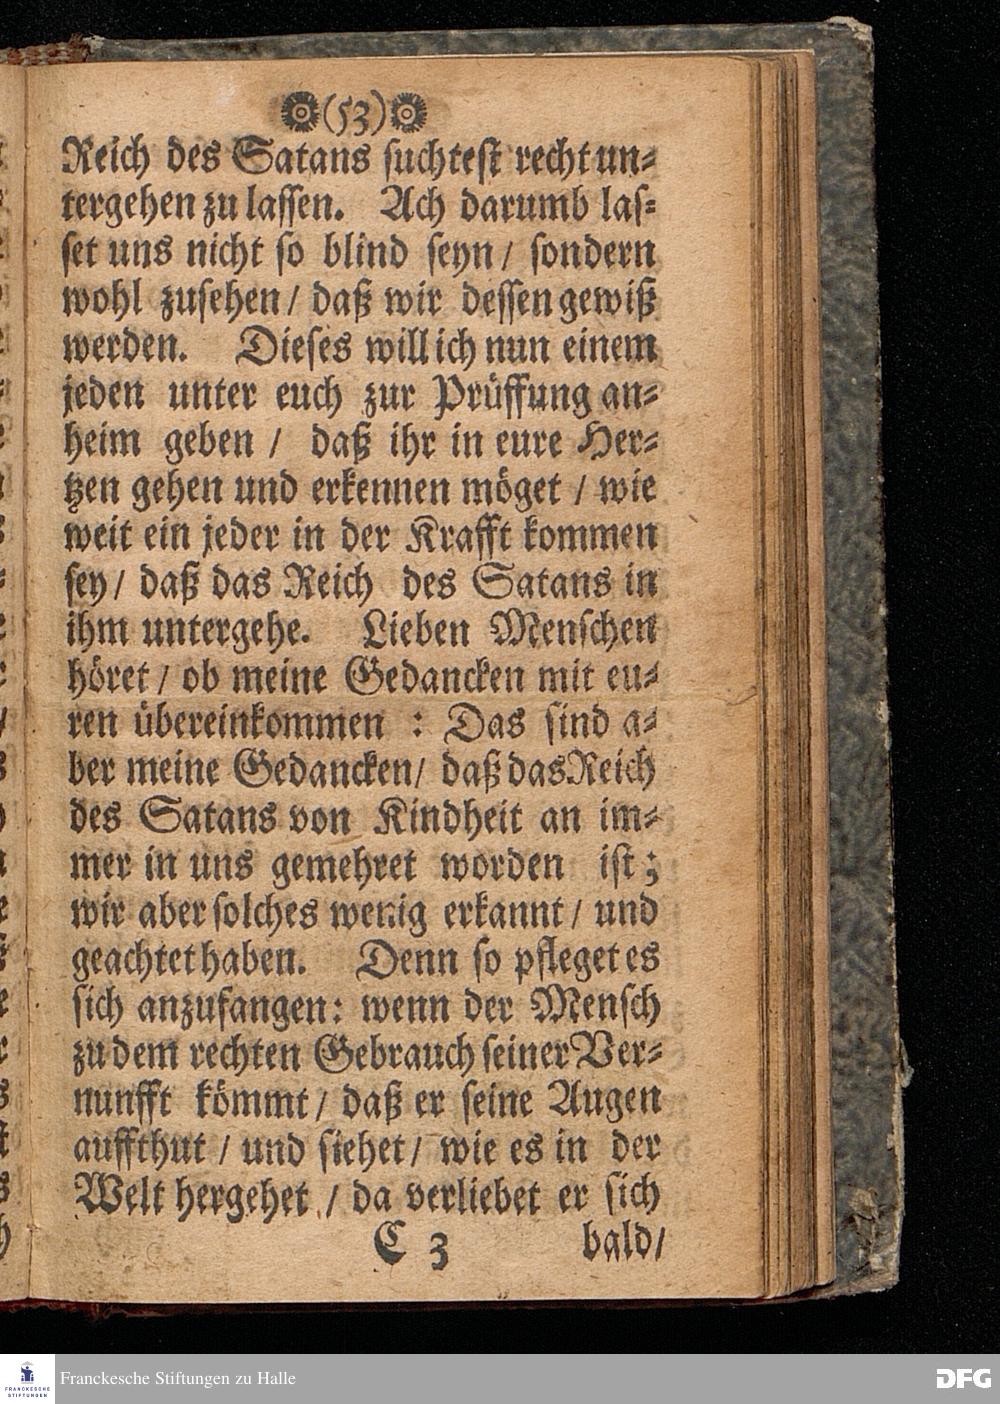 (53)
Reich des Satans suchtest recht un-
tergehen zu lassen. Ach darumb las-
set uns nicht so blind seyn / sondern
wohl zusehen / daß wir dessen gewiß
werden. Dieses will ich nun einem
jeden unter euch zur Prüffung an-
heim geben / daß ihr in eure Her-
tzen gehen und erkennen möget / wie
weit ein jeder in der Krafft kommen
sey / daß das Reich des Satans in
ihm untergehe. Lieben Menschen
höret / ob meine Gedancken mit eu-
ren übereinkommen : Das sind a-
ber meine Gedancken / daß das Reich
des Satans von Kindheit an im-
mer in uns gemehret worden ist;
wir aber solches wenig erkannt / und
geachtet haben. Denn so pfleget es
sich anzufangen: wenn der Mensch
zu dem rechten Gebrauch seiner Ver-
nunfft kömmt / daß er seine Augen
auffthut / und siehet / wie es in der
Welt hergehet / da verliebet er sich
C 3 bald /
FRANCKESCHE
STIFTUNGEN
Franckesche Stiftungen zu Halle
DFG